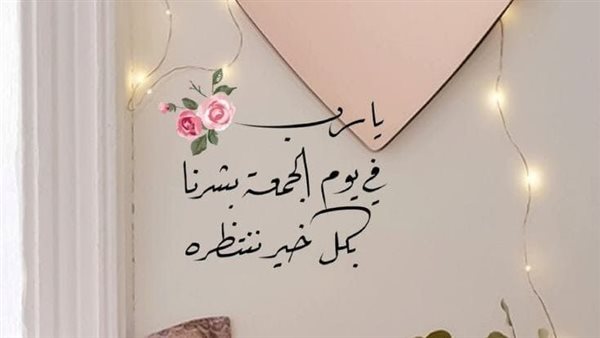 يارب
في يوم الجمعة بشرنا
بكل خير ننتظره